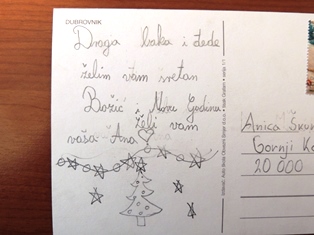 DUBROVNIK
Draga baka i dede
želim vam sretan
Božić i Novu Godinu.
želi vam
vaša Ana
Anica
Gornji
20 000